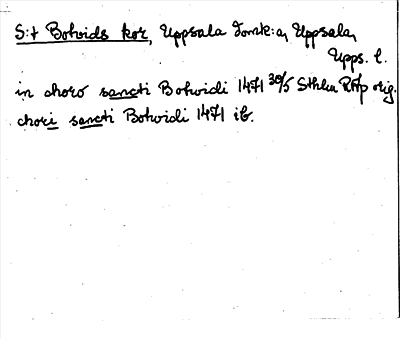 S:t Botvids kor, Uppsala Domk:a, Uppsala,
Upps. l.
in choro sancti Botwidi 1471 30/5 Sthlm RAp orig.
chori sancti Botwidi 1471 ib.